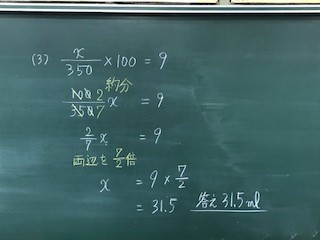 (3) x/350 × 100 = 9
約分
100 2/350 7 x = 9
2/7 x = 9
両辺を 7/2 倍
x = 9 × 7/2
= 31.5 答え 31.5ml